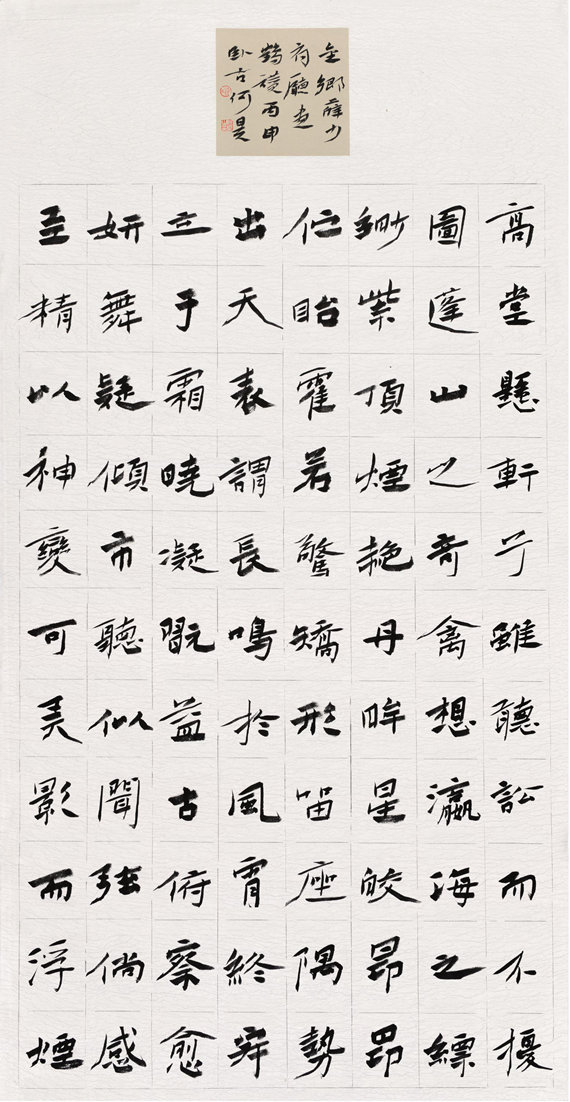 金鄉薛少
府廳畫
鶴讚丙申
卧云何
高堂懸軒兮雖聽訟而不擾
圖蓬山之奇禽想瀛海之縹
緲紫頂煙赩丹眸星皎昂昂
佇眙霍若驚矯形留座隅勢
出天表謂長鳴於風霄終寂
立于霜曉凝翫益古俯察愈
妍舞疑傾市聽似聞弦倘感
至精以神變可弄影而浮煙